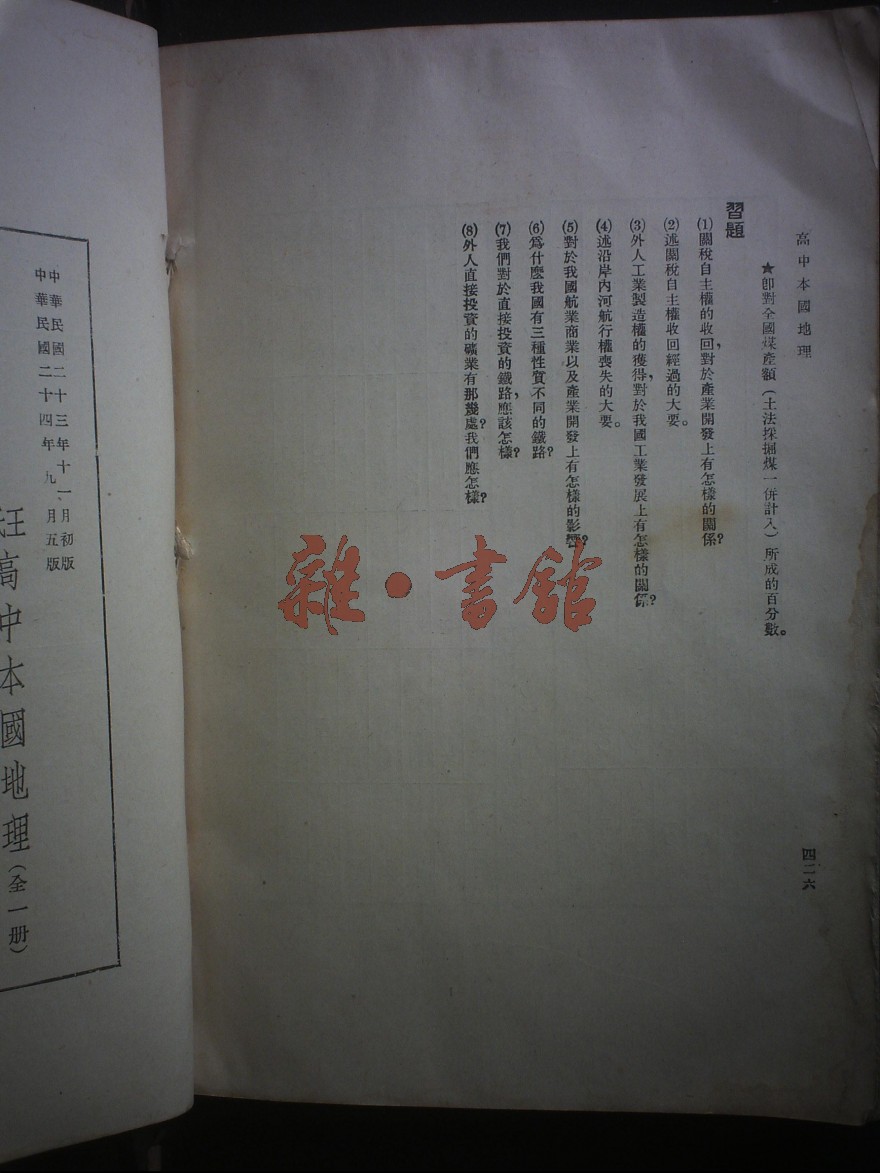 高中本國地理
★即對全國煤產額(土法採掘煤一併計入)所成的百分數。
習題
(1)關稅自主權的收回,對於產業開發上有怎樣的關係?
(2)述關稅自主權收回經過的大要。
(3)外人工業製造權的獲得,對於我國工業發展上有怎樣的關係?
(4)述沿岸內河航行權喪失的大要。
(5)對於我國航業商業以及產業開發上有怎樣的影響?
(6)爲什麼我國有三種性質不同的鐵路?
(7)我們對於直接投資的鐵路,應該怎樣?
(8)外人直接投資的礦業有那幾處?我們應怎樣?
四二六
雜·書館
中華民國二十三年十一月初版
中華民國二十四年九月五版
高中本國地理(全一册)